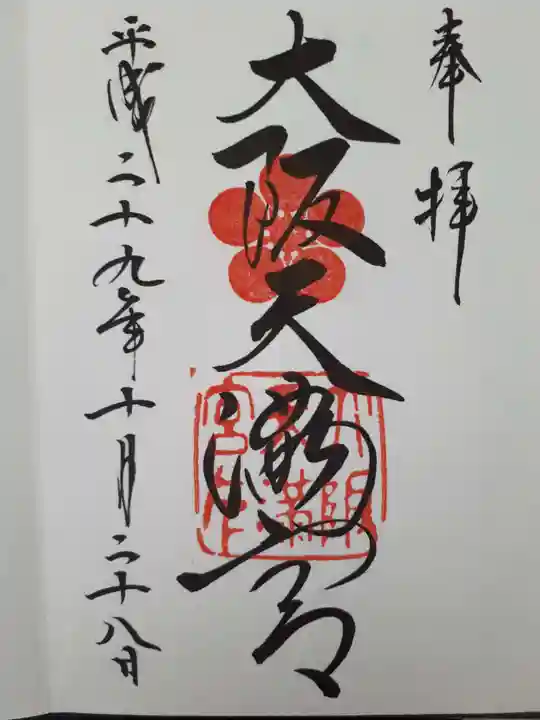 奉拝
大阪天満宮
平成二十九年十月二十八日